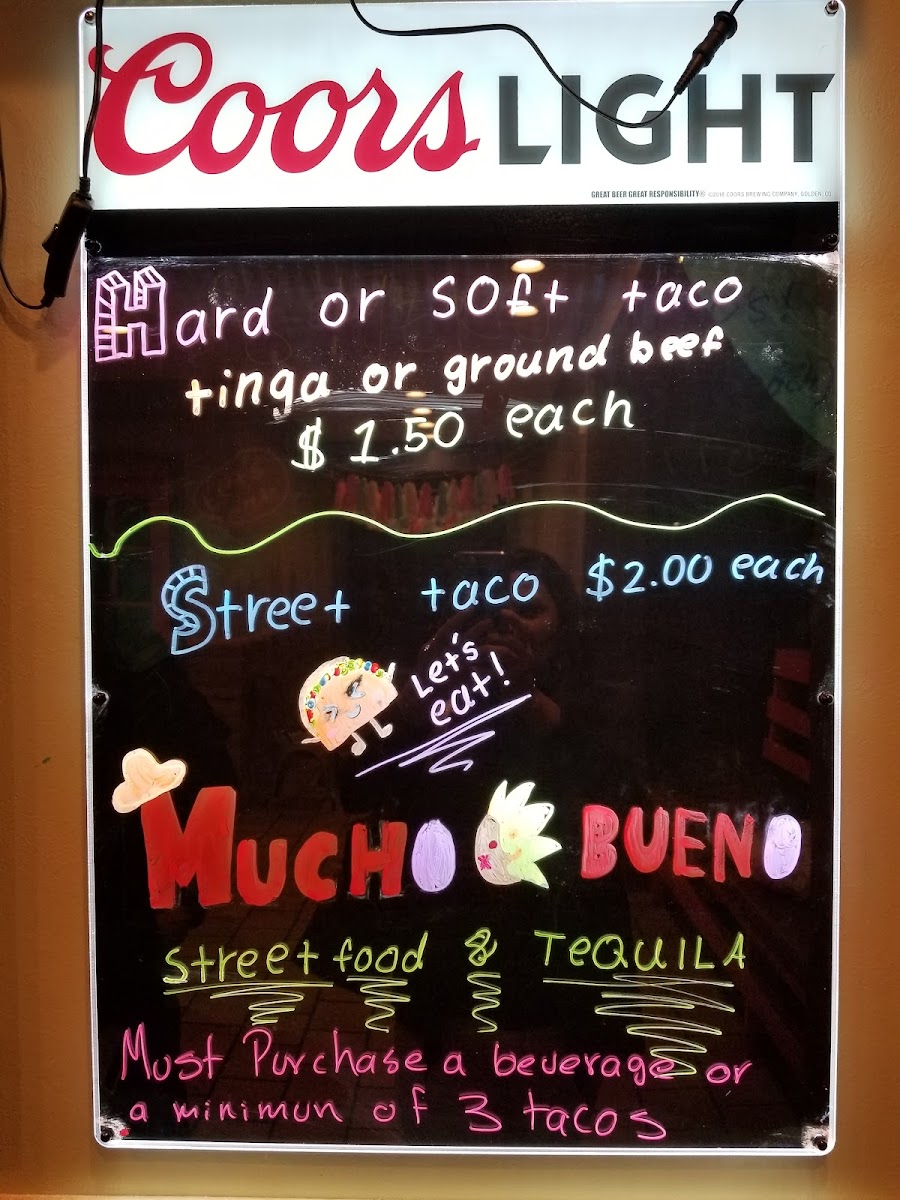 Coors LIGHT
GREAT BEER GREAT RESPONSIBILITY® ©2016 COORS BREWING COMPANY, GOLDEN, CO
Hard or SOft taco
tinga or ground beef
$ 1.50 each
Street taco $2.00 each
Let's
eat!
MUCHO BUENO
street food & TEQUILA
Must Purchase a beverage or
a minimun of 3 tacos